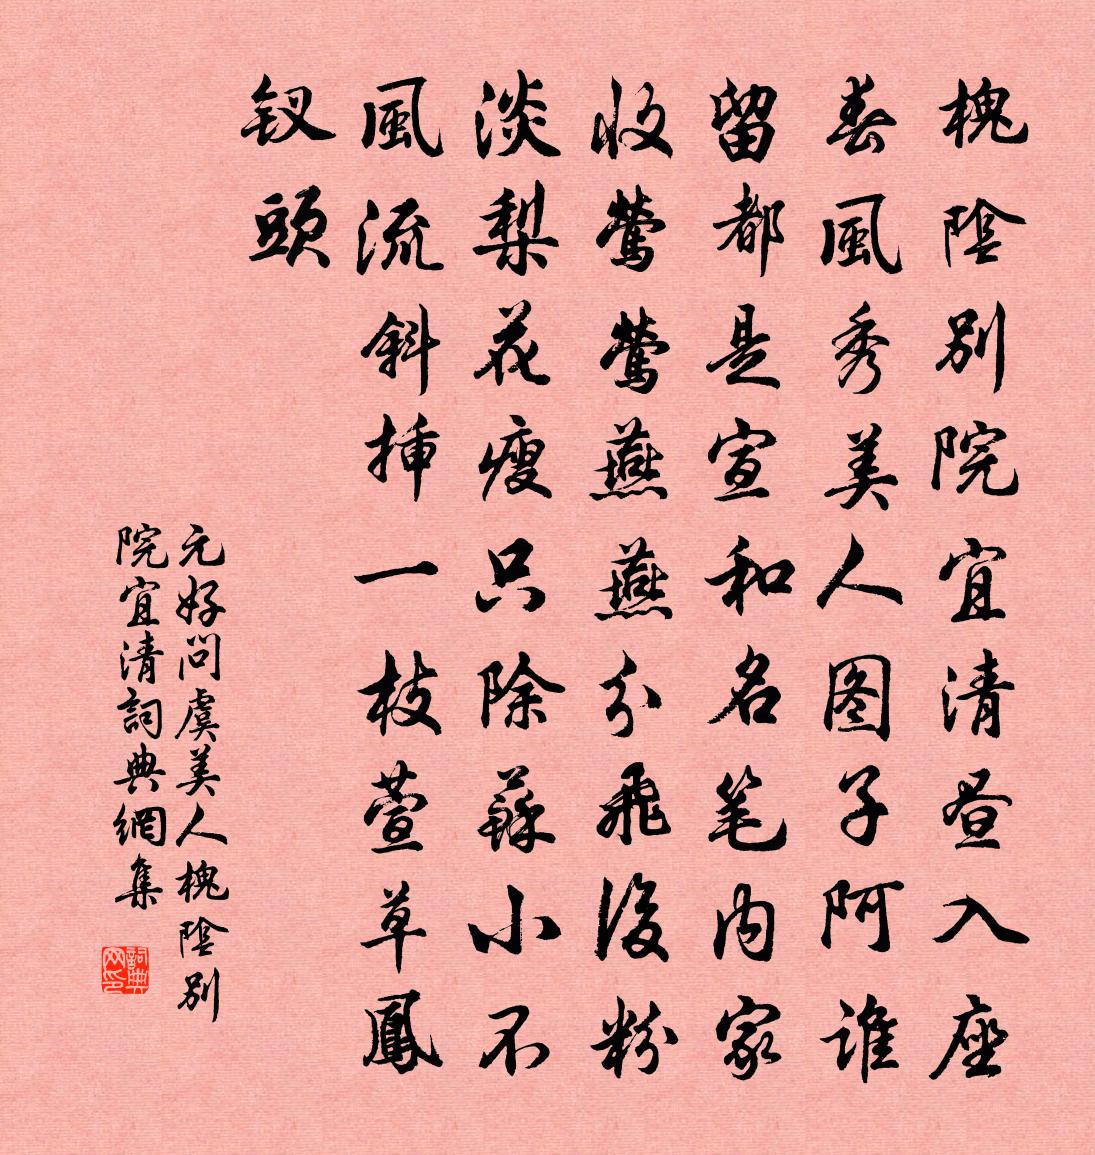 槐陰別院宜清昼入座
春風秀美人图子阿谁
留都是宣和名笔内家
收莺莺燕燕分飛後粉
淡梨花瘦只除蘇小不
風流斜挿一枝萱草鳳
钗頭
元好問虞美人槐陰別
院宜清詞典網集
詞典网印